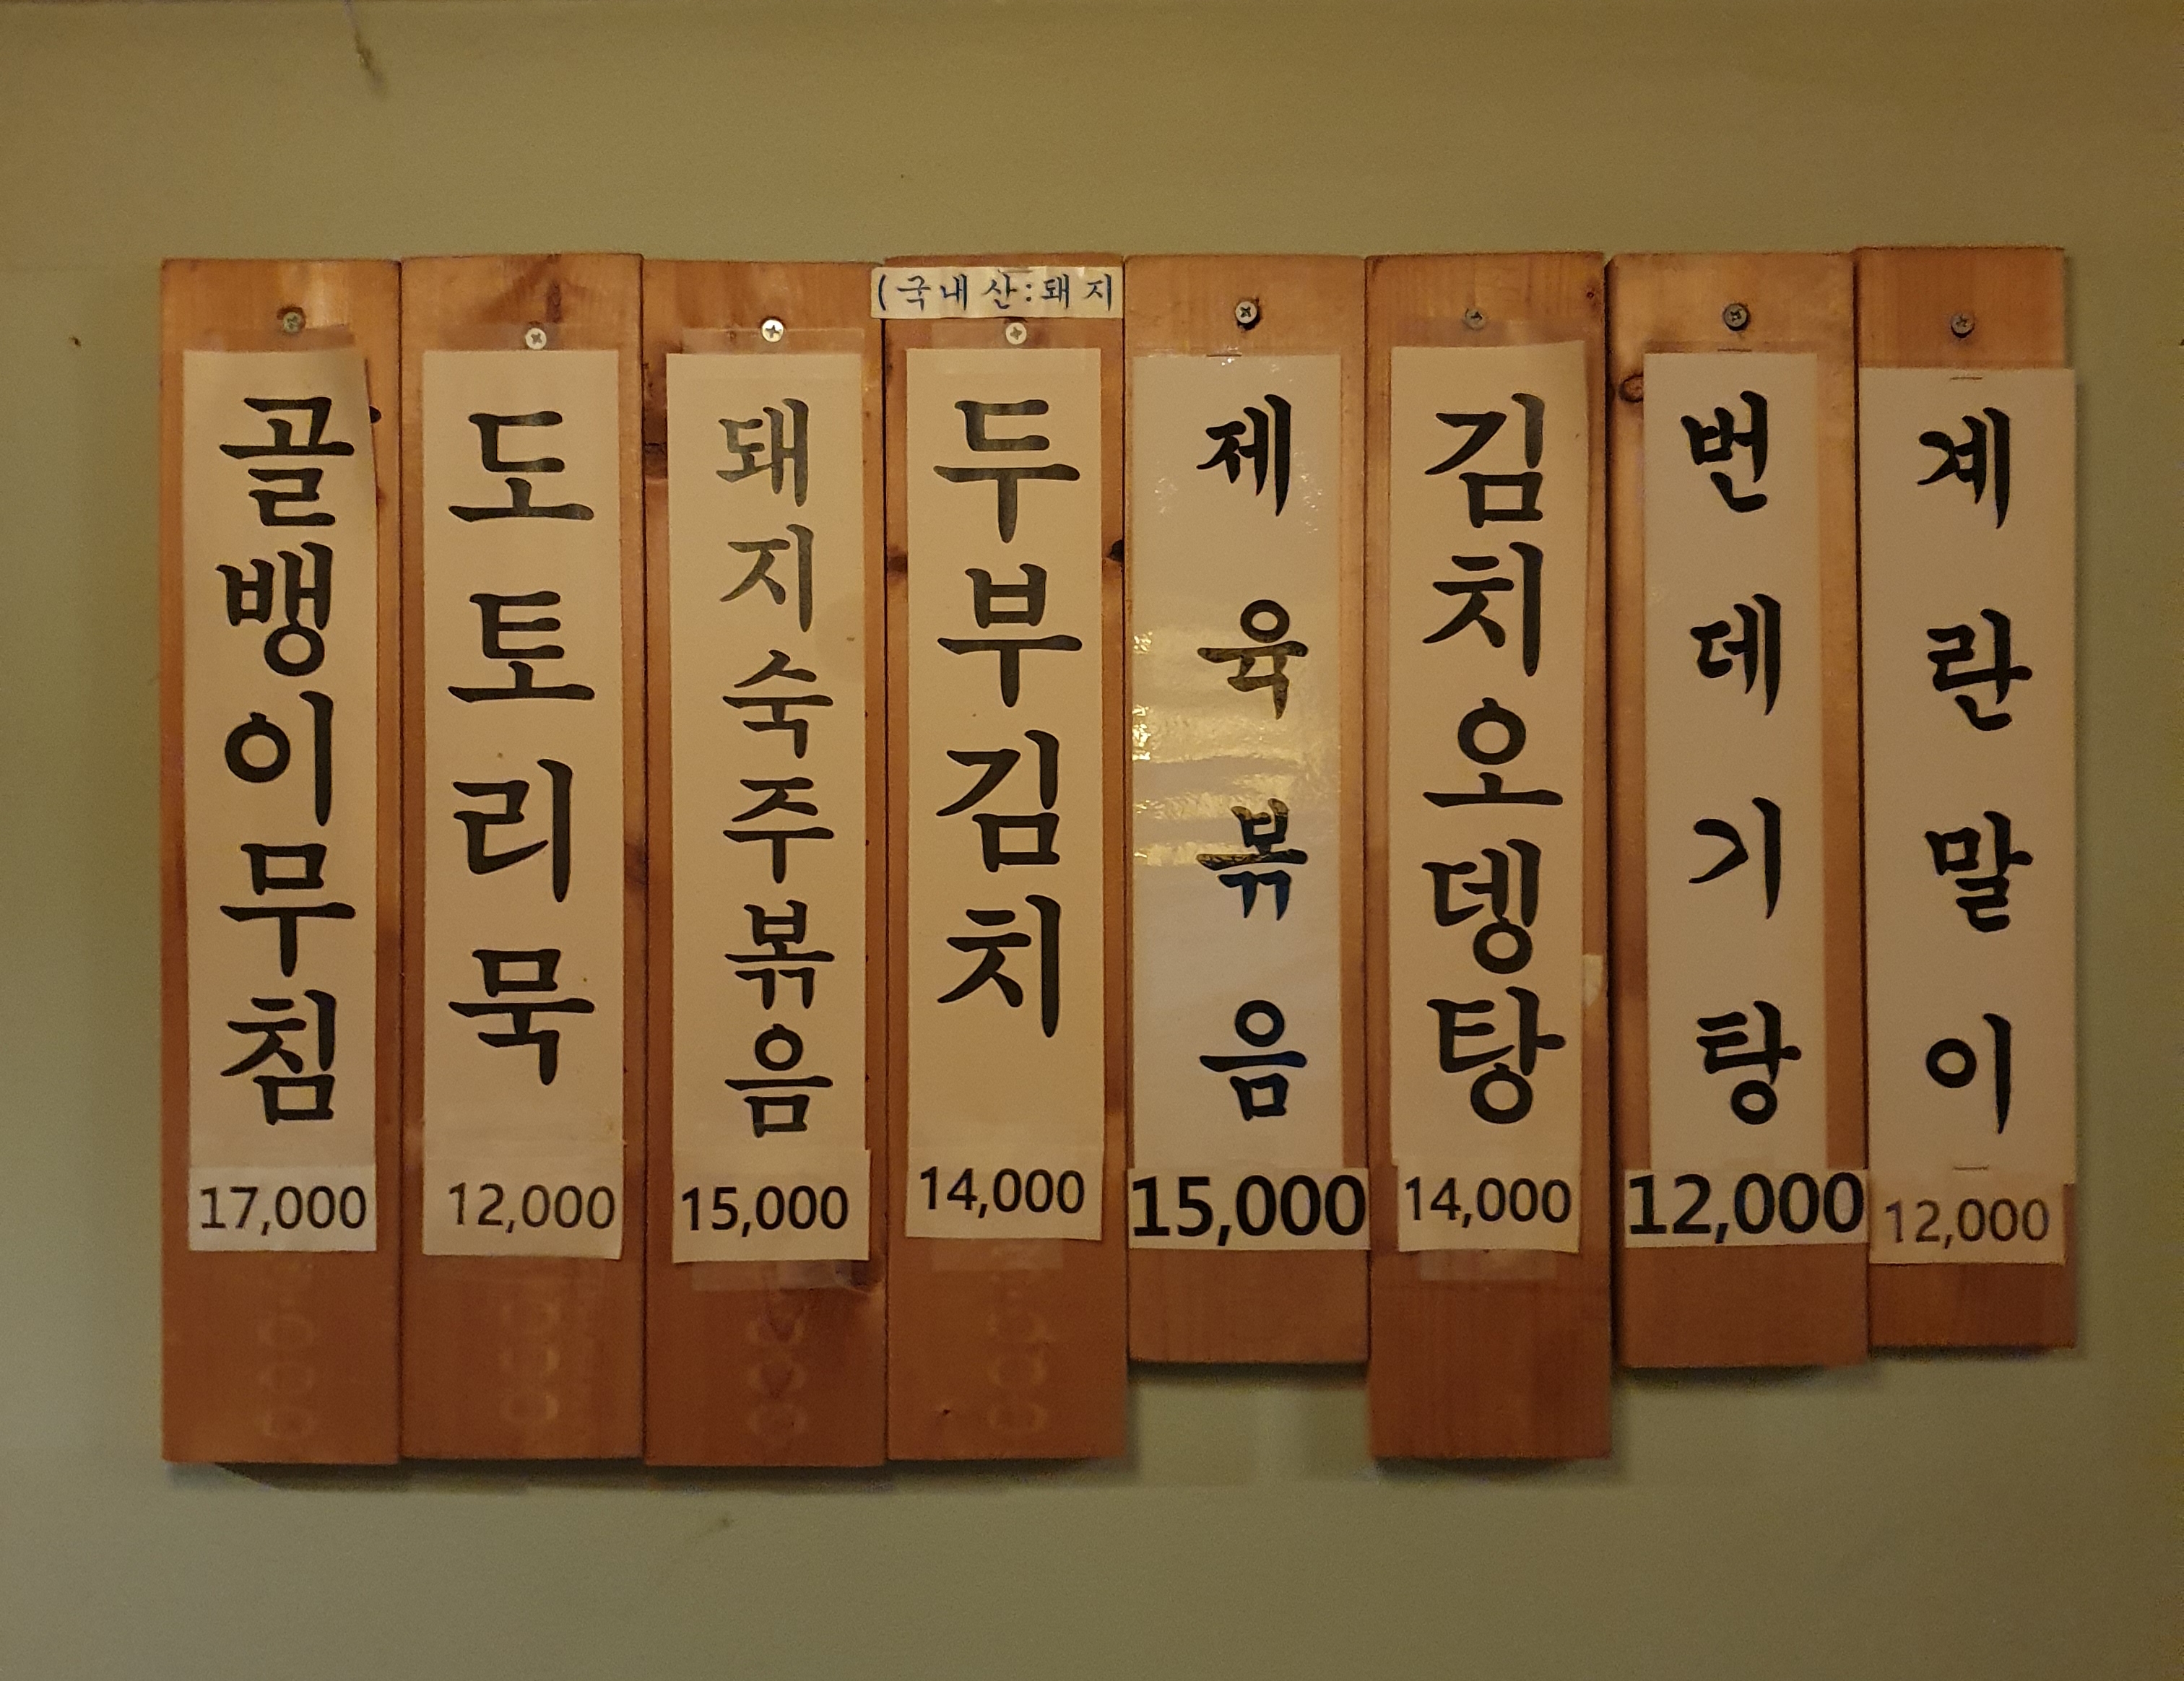 골뱅이무침
17,000
도토리묵
12,000
돼지숙주볶음
15,000
(국내산:돼지
두부김치
14,000
제육볶음
15,000
김치오뎅탕
14,000
번데기탕
12,000
계란말이
12,000